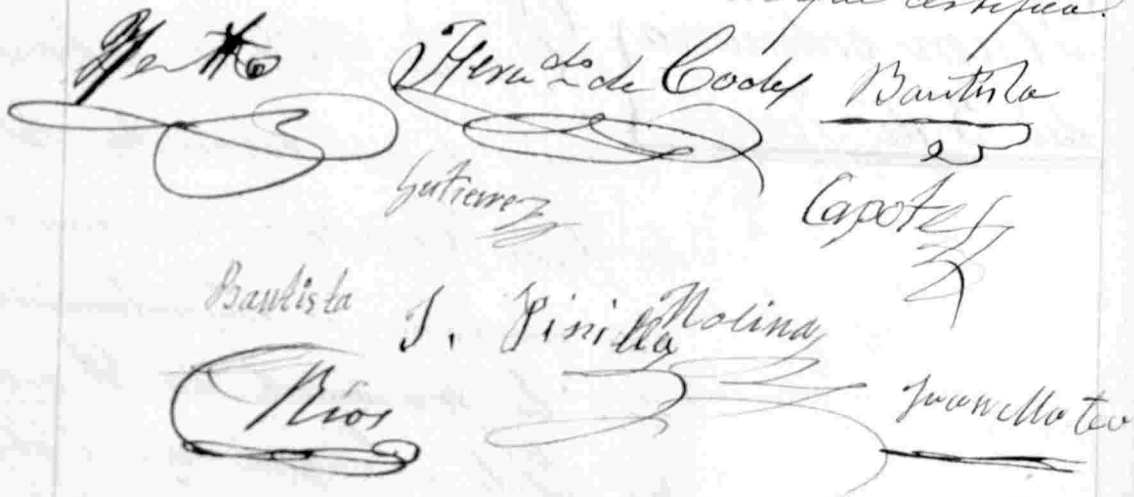 que certifica.
Hern.do de Codes Bautista
Gutierrez Capote
Bautista J. Pinilla Molina
Ríos Juan Mateo